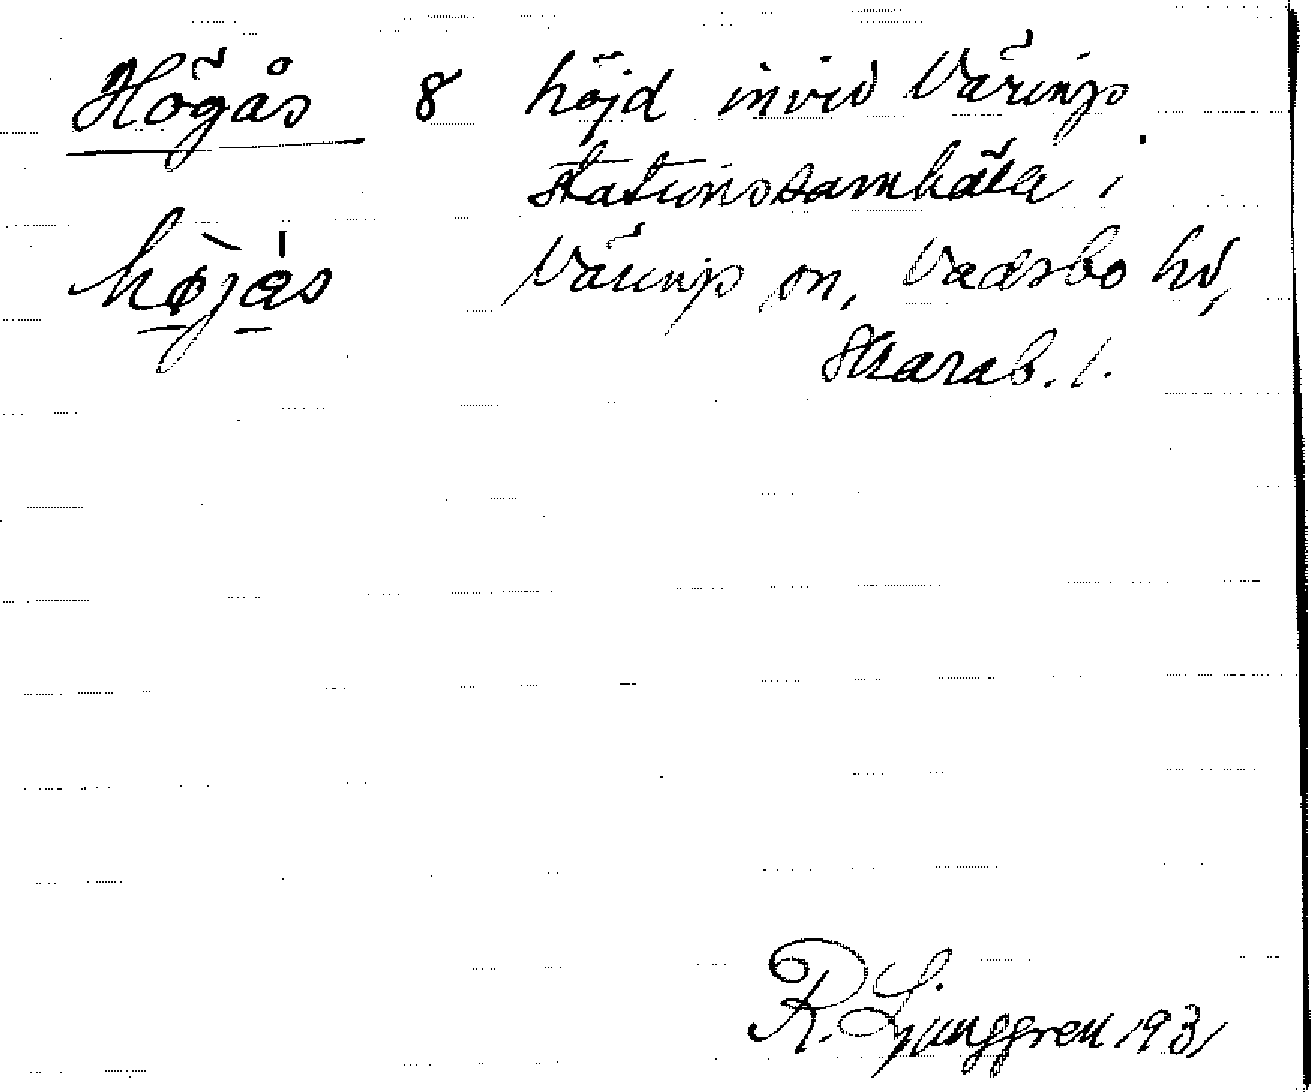 Högås 8 höjd invid Värings
stationssamhälle i
höjås Värings sn, Vadsbo hd,
Skarab. l.
R. Ljunggren 1931